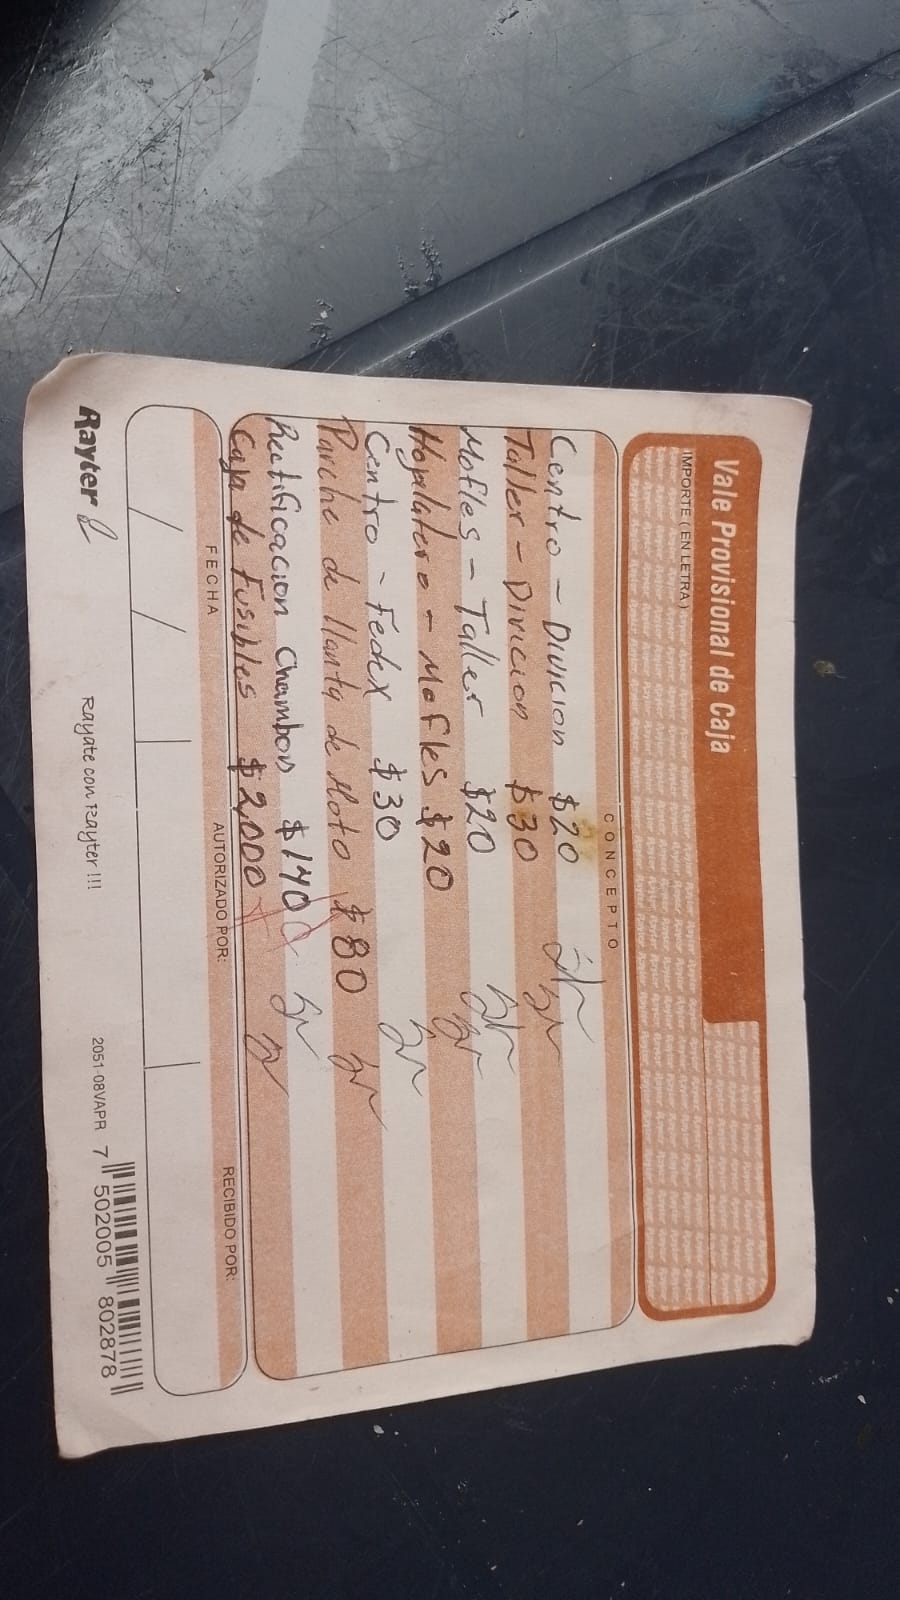 Vale Provisional de Caja
IMPORTE ( EN LETRA )
CONCEPTO
Centro - Divicion $20
Taller - Divicion $30
Mofles - Taller $20
Hojalatero - Mofles $20
Centro - Fedex $30
Parche de llanta de Moto $80
Rectificacion Chambon $140
Caja de Fusibles $2,000
FECHA
AUTORIZADO POR:
RECIBIDO POR:
Rayter
Rayate con Rayter !!!
2051-08VAPR
7 502005 802878